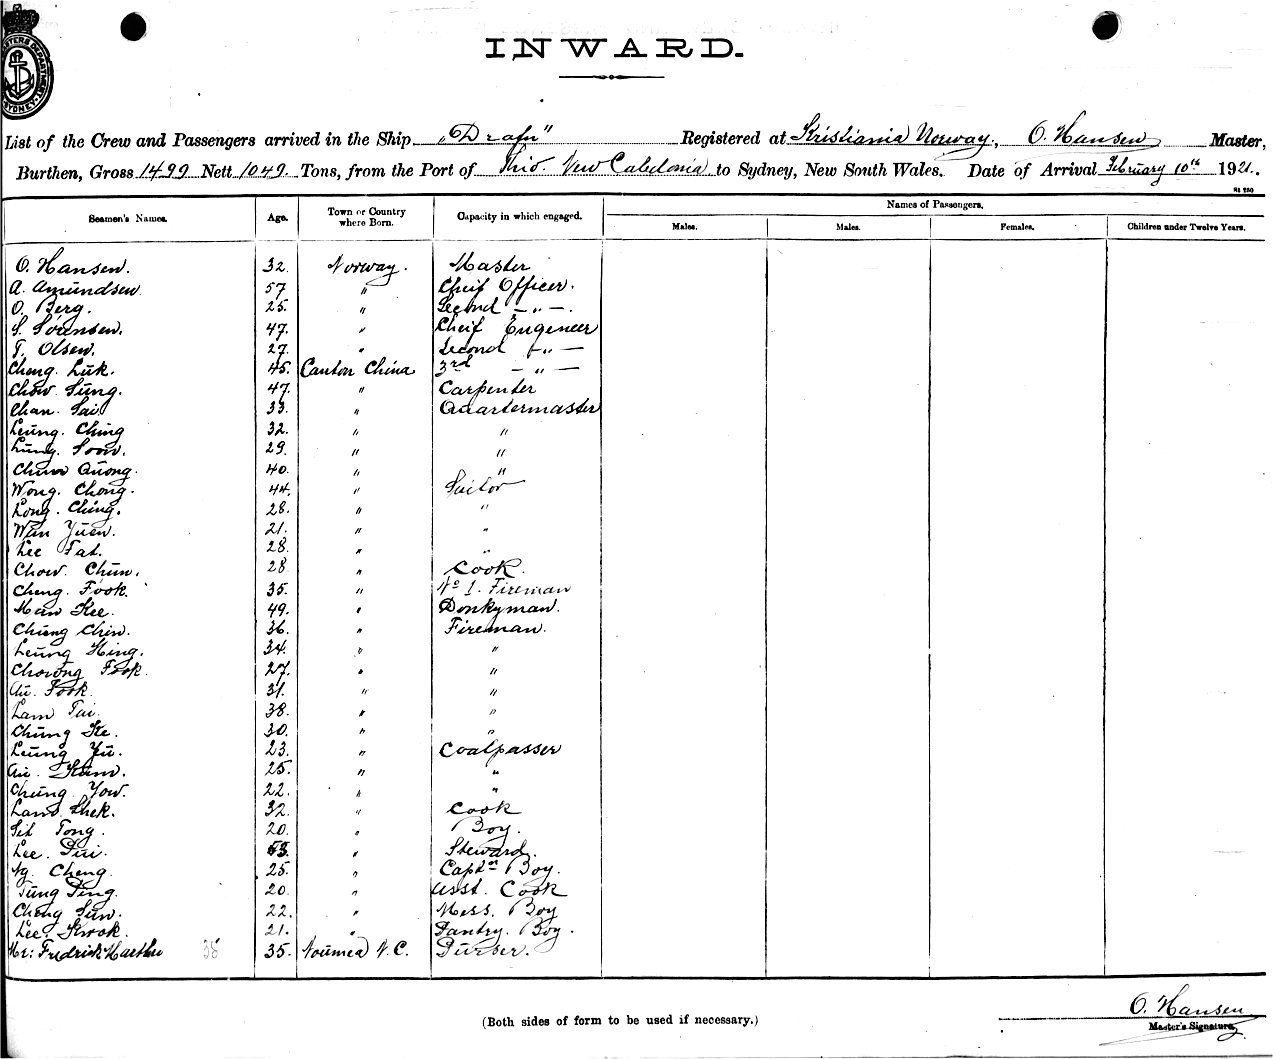 INWARD.
List of the Crew and Passengers arrived in the Ship „Drafn" Registered at Kristiania Norway, O. Hansen Master,
Burthen, Gross 1499 Nett 1049 Tons, from the Port of Thio. New Caledonia to Sydney, New South Wales. Date of Arrival February 10th 1921.
Seamen's Names. Age. Town or Country where Born. Capacity in which engaged. Names of Passengers.
Males. Males. Females. Children under Twelve Years.
O. Hansen. 32. Norway. Master
A. Amundsen 57 " Cheif Officer.
O. Berg. 25. " Second — " —.
S. Sörensen. 47. " Cheif Engeneer
T. Olsen. 27. " Second — " —
Cheng Luk. 45. Canton China 3rd — " —
Chow Sung. 47. " Carpenter
Chan. Sai 33. " Quartermaster
Leung. Ching 32. " "
Lung. Soon. 29. " "
Chun Quong. 40. " "
Wong. Chong. 44. " Sailor
Long. Ching. 28. " "
Wan Yuen. 21. " "
Lee Fat. 28. " "
Chow. Chun. 28 " Cook.
Cheng. Fook. 35. " No 1. Fireman
Man Kee. 49. " Donkyman.
Chung Chin. 36. " Fireman.
Leung Hing. 34. " "
Chowng Fook. 27. " "
Au. Fook. 31. " "
Lam Tai. 38. " "
Chung Ke. 30. " "
Leung Yu. 23. " Coalpasser
Au. Kam. 25. " "
Chung Yow. 22. " "
Lam Shek. 32. " Cook
Sit Tong. 20. " Boy.
Lee. Pui. 53. " Steward.
Ng. Cheng. 25. " Captn Boy.
Tung Ping. 20. " Asst. Cook
Cheng Sun. 22. " Mess. Boy
Lee. Kwok. 21. " Pantry. Boy.
Mr: Fredrick 35 35. Noumea N.C. Purser.
(Both sides of form to be used if necessary.)
O. Hansen
Master's Signature